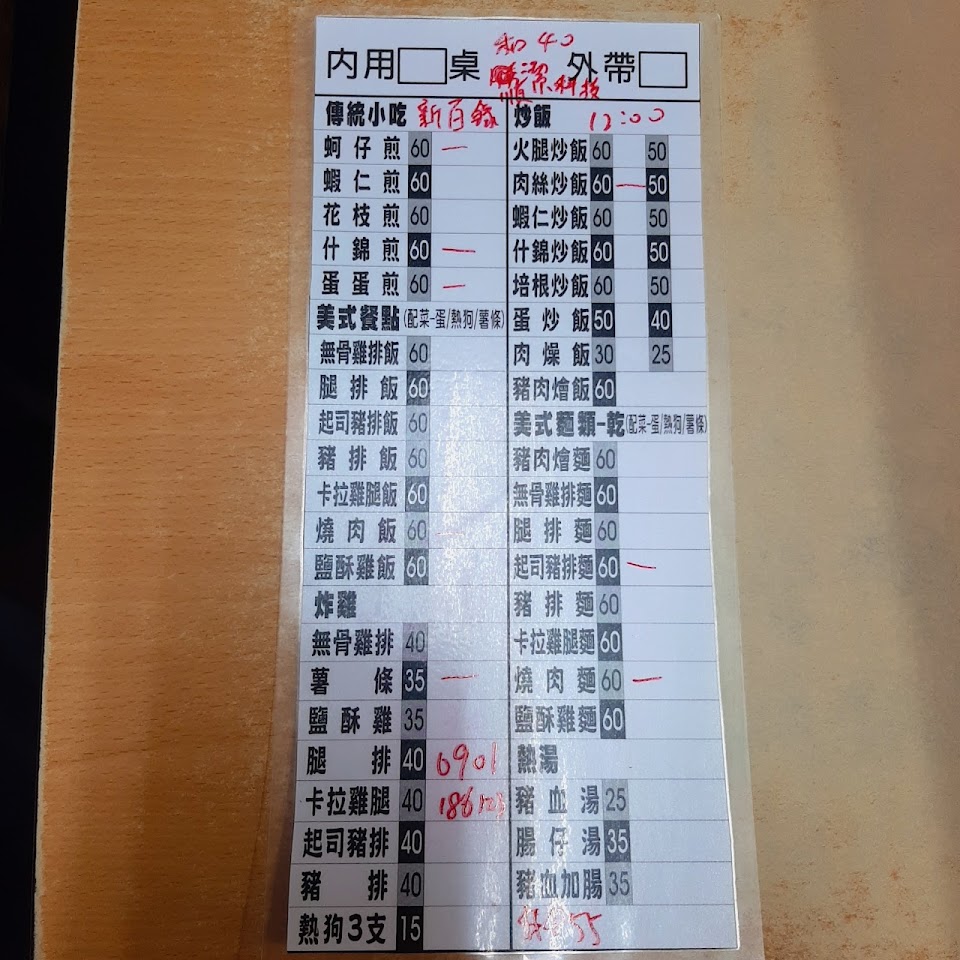 內用 桌 外帶
和 40
科技
傳統小吃 新百祿
蚵仔煎 60 一
蝦仁煎 60
花枝煎 60
什錦煎 60 一
蛋蛋煎 60 一
美式餐點(配菜-蛋/熱狗/薯條)
無骨雞排飯 60
腿排飯 60
起司豬排飯 60
豬排飯 60
卡拉雞腿飯 60
燒肉飯 60 一
鹽酥雞飯 60
炸雞
無骨雞排 40
薯條 35 一
鹽酥雞 35
腿排 40 0901
卡拉雞腿 40
起司豬排 40
豬排 40
熱狗3支 15
炒飯 12:00
火腿炒飯 60 50
肉絲炒飯 60 一 50
蝦仁炒飯 60 50
什錦炒飯 60 50
培根炒飯 60 50
蛋炒飯 50 40
肉燥飯 30 25
豬肉燴飯 60
美式麵類-乾(配菜-蛋/熱狗/薯條)
豬肉燴麵 60
無骨雞排麵 60
腿排麵 60
起司豬排麵 60 一
豬排麵 60
卡拉雞腿麵 60
燒肉麵 60 一
鹽酥雞麵 60
熱湯
豬血湯 25
腸仔湯 35
豬血加腸 35
55